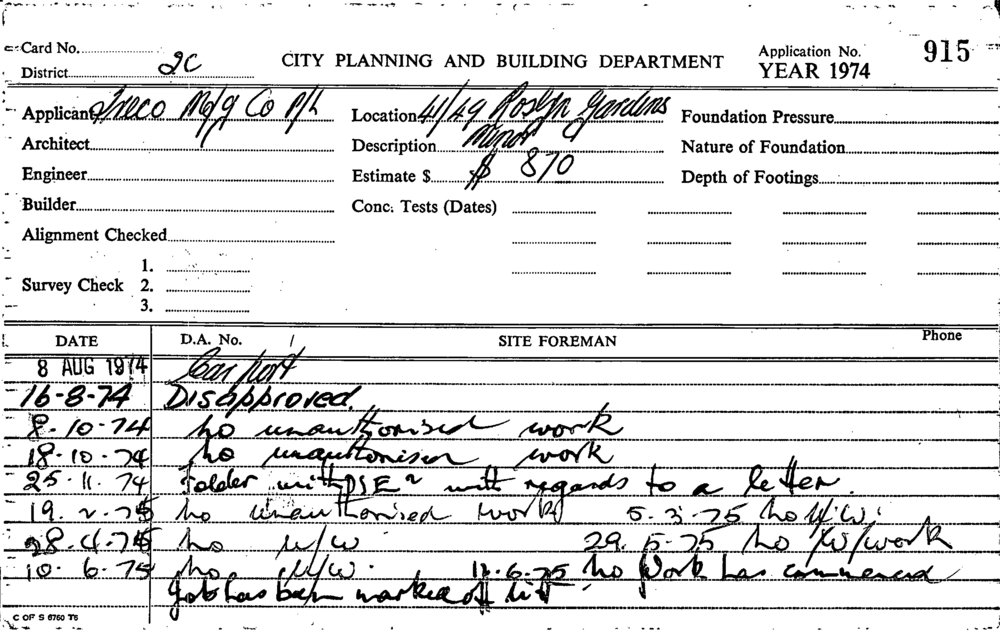 Card No.
District 2C
CITY PLANNING AND BUILDING DEPARTMENT
Application No. 915
YEAR 1974
Applicant Treco Mfg Co P/L
Location 41/49 Roslyn Gardens
Foundation Pressure
Architect
Description Minor
Nature of Foundation
Engineer
Estimate $ $ 870
Depth of Footings
Builder
Conc. Tests (Dates)
Alignment Checked
1.
Survey Check 2.
3.
DATE D.A. No. SITE FOREMAN Phone
8 AUG 1974 Car port
16-8-74 Disapproved.
8-10-74 no unauthorised work
18-10-74 no unauthorised work
25-11-74 Folder with DSE with regards to a letter.
19.2.75 no unauthorised work 5.3.75 no U/W.
28.4.75 no u/w 29.5.75 no U/work
10.6.75 no U/W. 12.6.75 no work has commenced
Job has been marked off list
C OF S 6760 T6